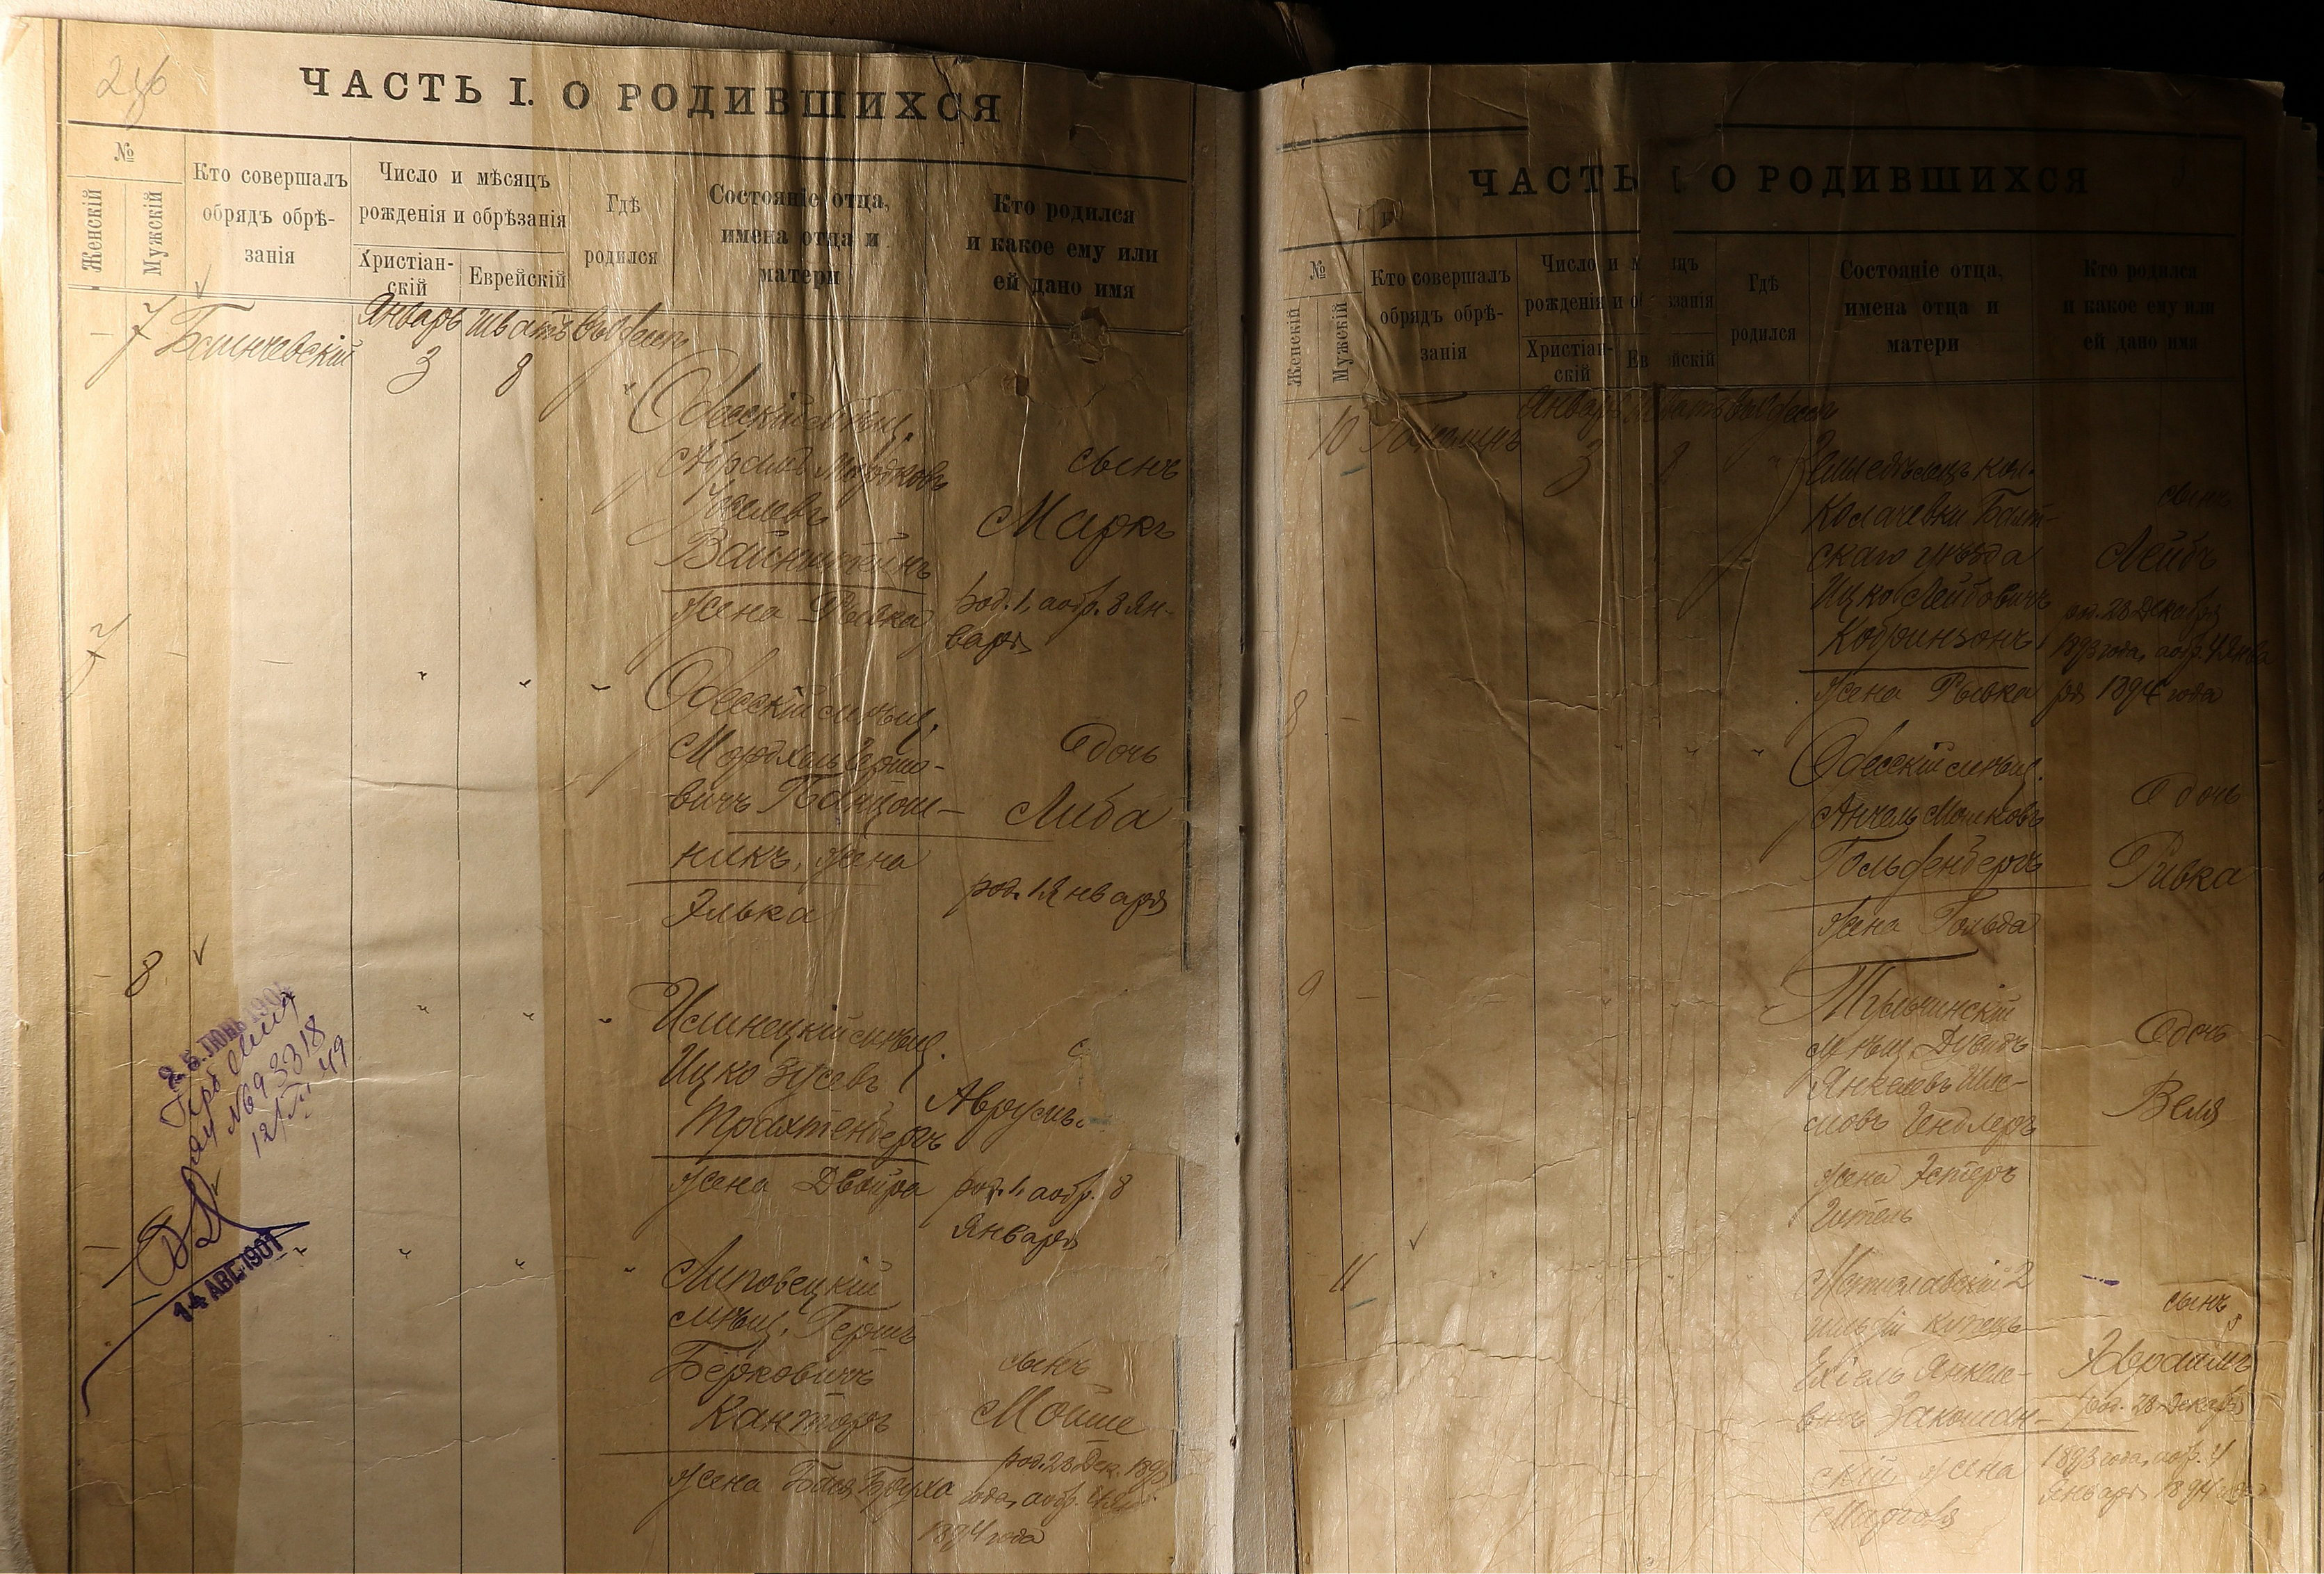 ЧАСТЬ I. О РОДИВШИХСЯ
№
Женскій
Мужскій
Кто совершалъ
обрядъ обрѣ-
занія
Число и мѣсяцъ
рожденія и обрѣзанія
Христіан-
скій
Еврейскій
Гдѣ
родился
Состояніе отца,
имена отца и
матери
Кто родился
и какое ему или
ей дано имя
7
Январь
3
8
Одесскій мѣщ.
Вайнштейнъ
жена Рывка
сынъ
Маркъ
род. 1, а обр. 8 Ян-
варя
7
Одесскій мѣщ.
вичъ Банцош-
никъ, жена
Элька
дочь
Либа
род. 1 Января
8
Ицко Зусевъ
Трахтенбергъ
жена Двойра
Аврумъ
род. 1, а обр. 8
Января
Липовецкій
мѣщ. Гершъ
Берковичъ
Канторъ
жена Бася Бруха
сынъ
Мойше
род. 28 Дек. 1893
года, а обр. 4 Ян.
1894 года
№ 93318
14 АВГ. 1907
ЧАСТЬ I. О РОДИВШИХСЯ
№
Женскій
Мужскій
Кто совершалъ
обрядъ обрѣ-
занія
Число и
рожденія и
Христіан-
скій
Гдѣ
родился
Состояніе отца,
имена отца и
матери
Кто родился
и какое ему или
ей дано имя
10
Январь
3
8
Балт-
скаго уѣзда
Ицко Лейбовичъ
Кобринзонъ,
жена Рывка
сынъ
Лейбъ
род. 28 Декабря
1893 года, а обр. 4 Янва
ря 1894 года
8
Одесскій мѣщ.
Анчель Мошковъ
Гольденбергъ
жена Гольда
дочь
Ривка
9
Тульчинскій
мѣщ. Дувидъ
Янкелевъ Шле-
мовъ Гендлеръ
жена Эстеръ
Гитель
дочь
Веля
11
Мстиславскій 2
гильдіи купецъ
Ехіель Янкеле-
вичъ Закошан-
скій, жена
сынъ
Эфраимъ
род. 28 Декабря
1893 года, а обр. 4
Января 1894 года